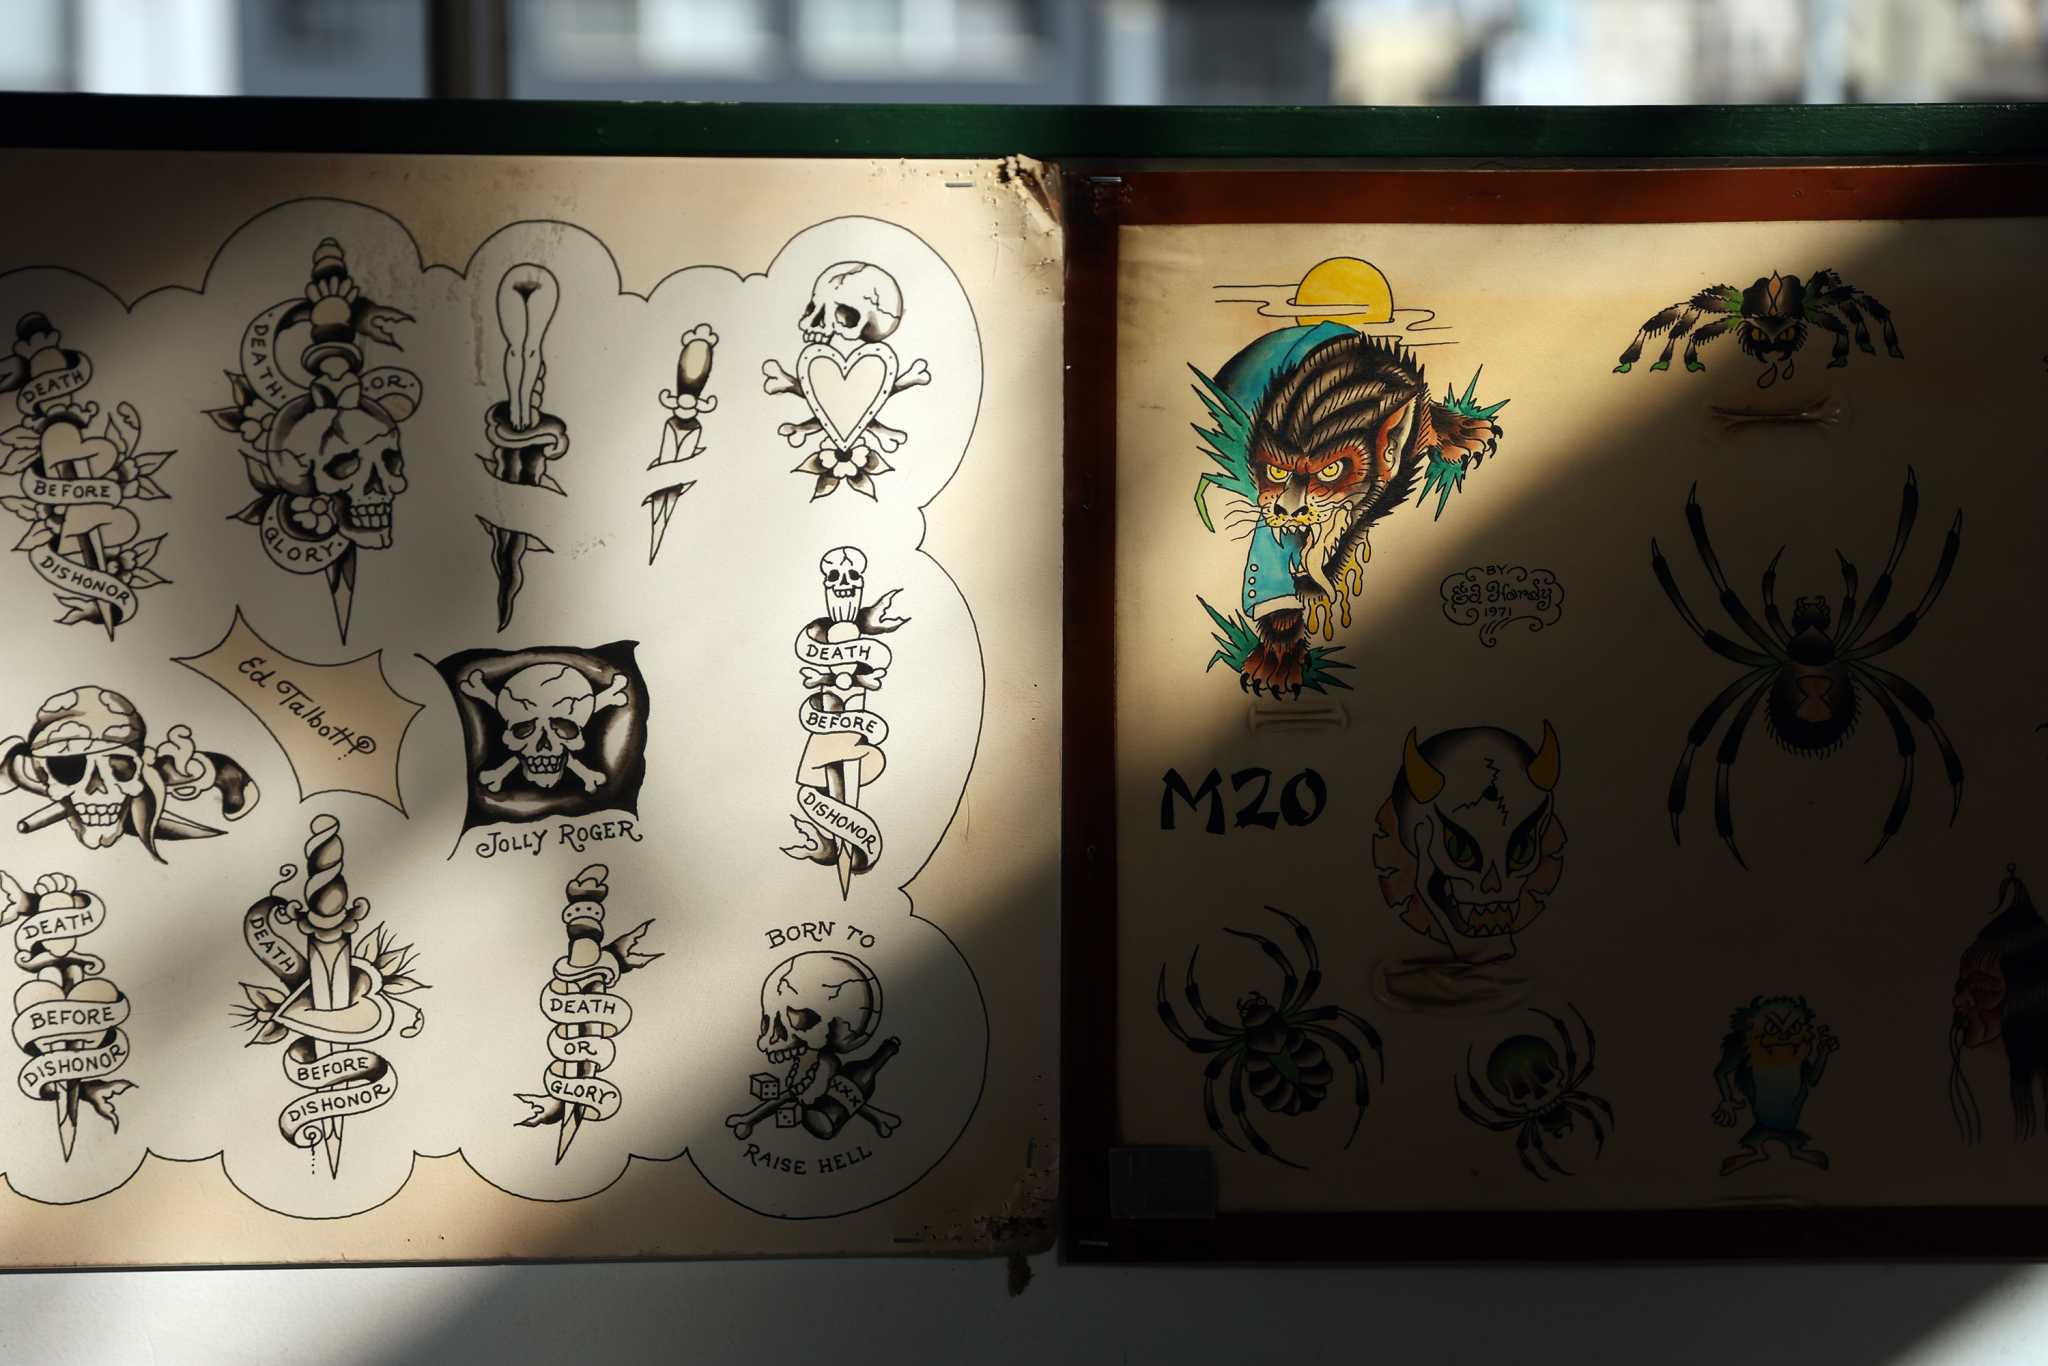 DEATH
BEFORE
DISHONOR
DEATH
OR
GLORY
DEATH
BEFORE
DISHONOR
Ed Talbott
JOLLY ROGER
DEATH
BEFORE
DISHONOR
DEATH
BEFORE
DISHONOR
DEATH
OR
GLORY
BORN TO
XXX
RAISE HELL
BY
Ed Hardy
1971
M20